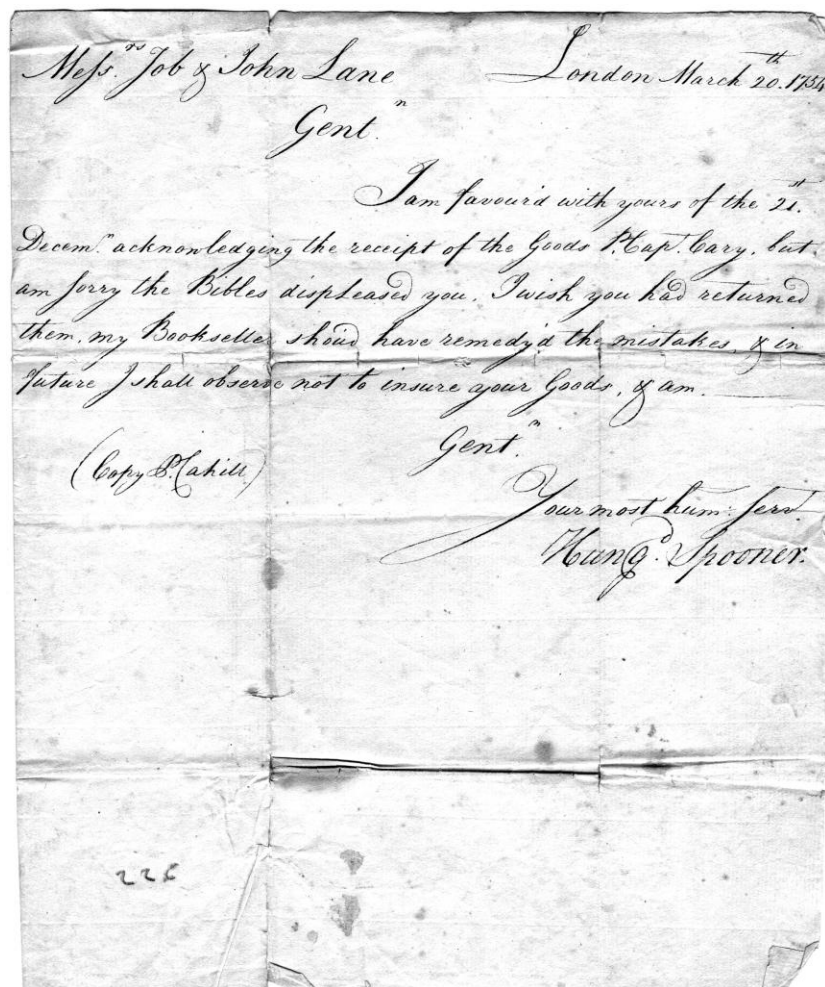 Mess.rs Job & John Lane London March 20.th 1754
Gent.n
I am favour'd with yours of the 21.st
Decem.r acknowledging the receipt of the Goods P. Cap.t Cary. but
am sorry the Bibles displeased you. I wish you had returned
them. my Bookseller shou'd have remedy'd the mistakes, & in
future I shall observe not to insure your Goods, & am.
Gent.n
(Copy P. Cahill)
Your most hum.e Serv.t
Spooner.
226